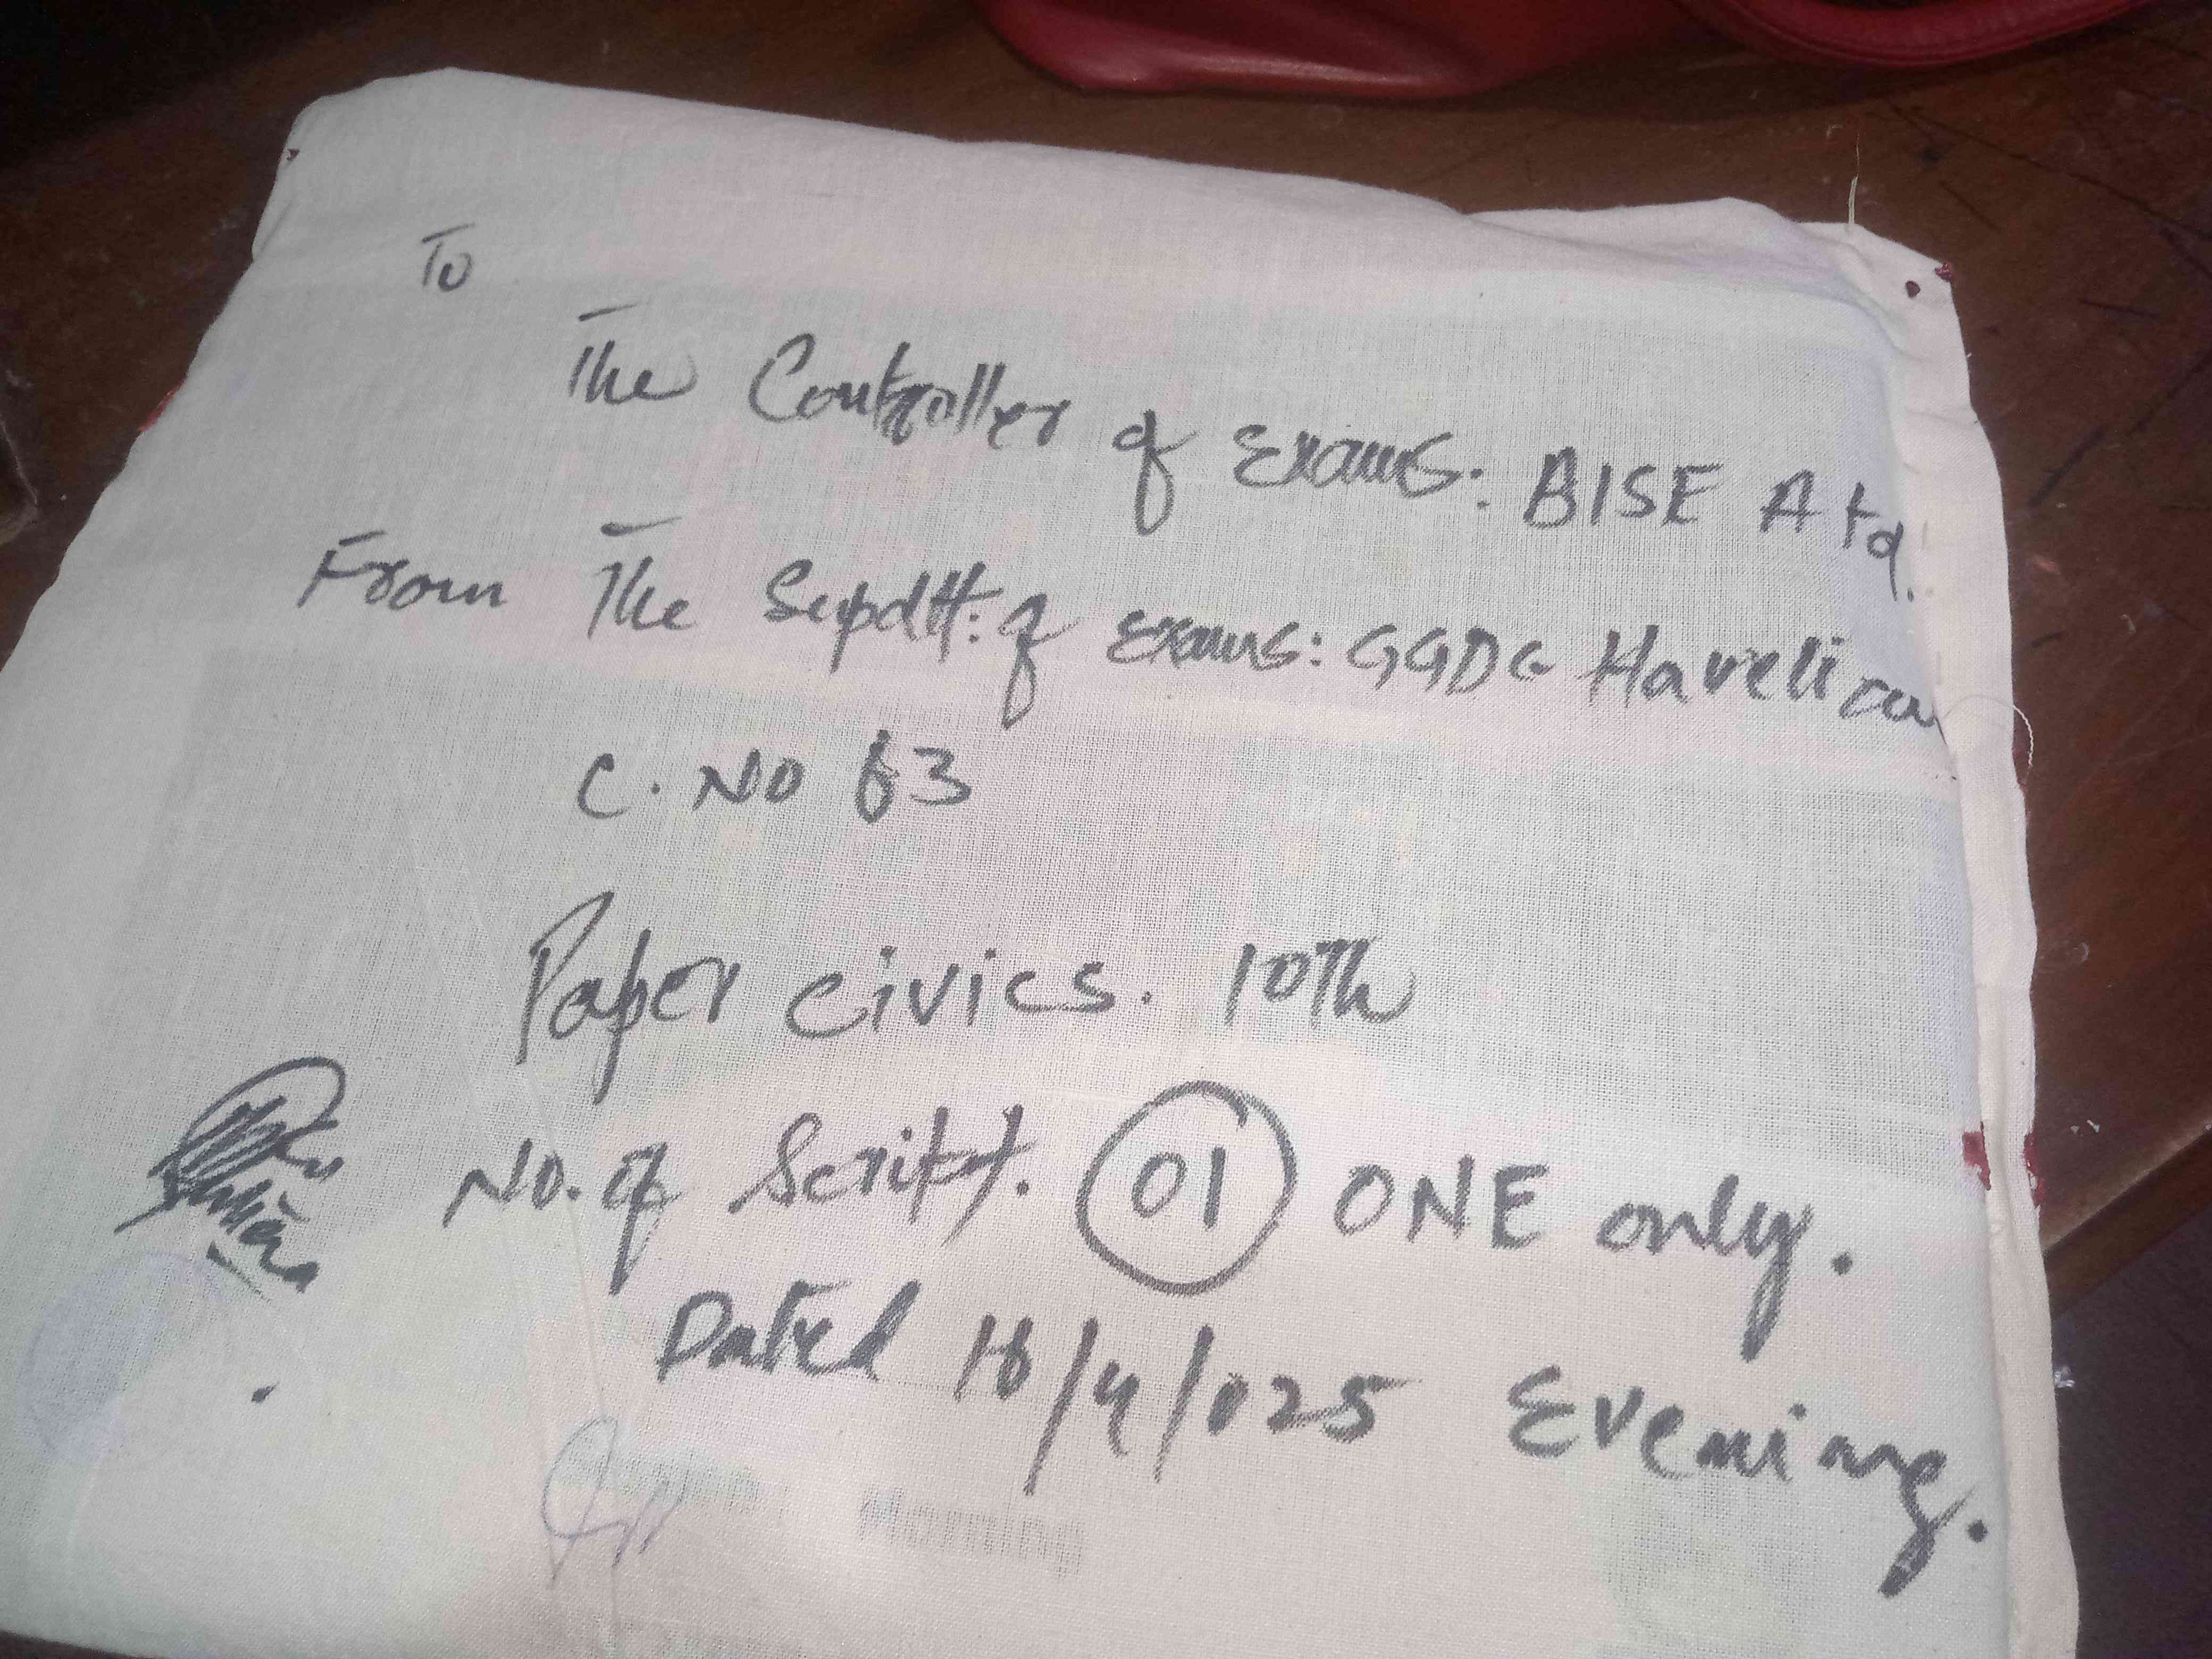 To
The Controller of Exams: BISE Atd.
From The Supdtt: of Exams: GGDC Havelian
C. No 63
Paper civics. 10Th
No. of Script. 01 ONE only.
Dated 16/4/025 Evening.
Morning